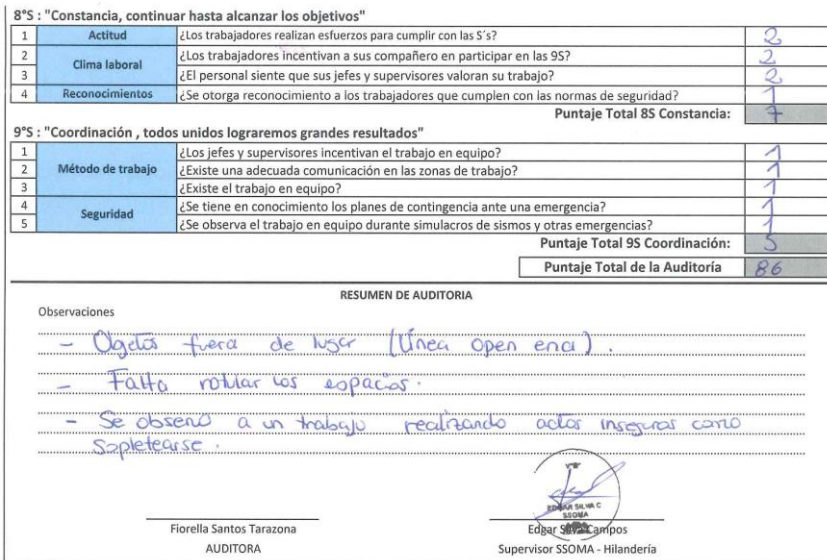 8°S : "Constancia, continuar hasta alcanzar los objetivos"
1 Actitud ¿Los trabajadores realizan esfuerzos para cumplir con las S´s? 2
2 Clima laboral ¿Los trabajadores incentivan a sus compañero en participar en las 9S? 2
3 ¿El personal siente que sus jefes y supervisores valoran su trabajo? 2
4 Reconocimientos ¿Se otorga reconocimiento a los trabajadores que cumplen con las normas de seguridad? 1
Puntaje Total 8S Constancia: 7
9°S : "Coordinación , todos unidos lograremos grandes resultados"
1 Método de trabajo ¿Los jefes y supervisores incentivan el trabajo en equipo? 1
2 ¿Existe una adecuada comunicación en las zonas de trabajo? 1
3 ¿Existe el trabajo en equipo? 1
4 Seguridad ¿Se tiene en conocimiento los planes de contingencia ante una emergencia? 1
5 ¿Se observa el trabajo en equipo durante simulacros de sismos y otras emergencias? 1
Puntaje Total 9S Coordinación: 5
Puntaje Total de la Auditoría 86
RESUMEN DE AUDITORIA
Observaciones
- Objetos fuera de lugar (Línea open end).
- Falta rotular los espacios.
- Se observó a un trabajo realizando actos inseguros como
sopletearse.
VºBº
EDGAR SILVA C
SSOMA
Fiorella Santos Tarazona
Edgar Silva Campos
AUDITORA
Supervisor SSOMA - Hilandería